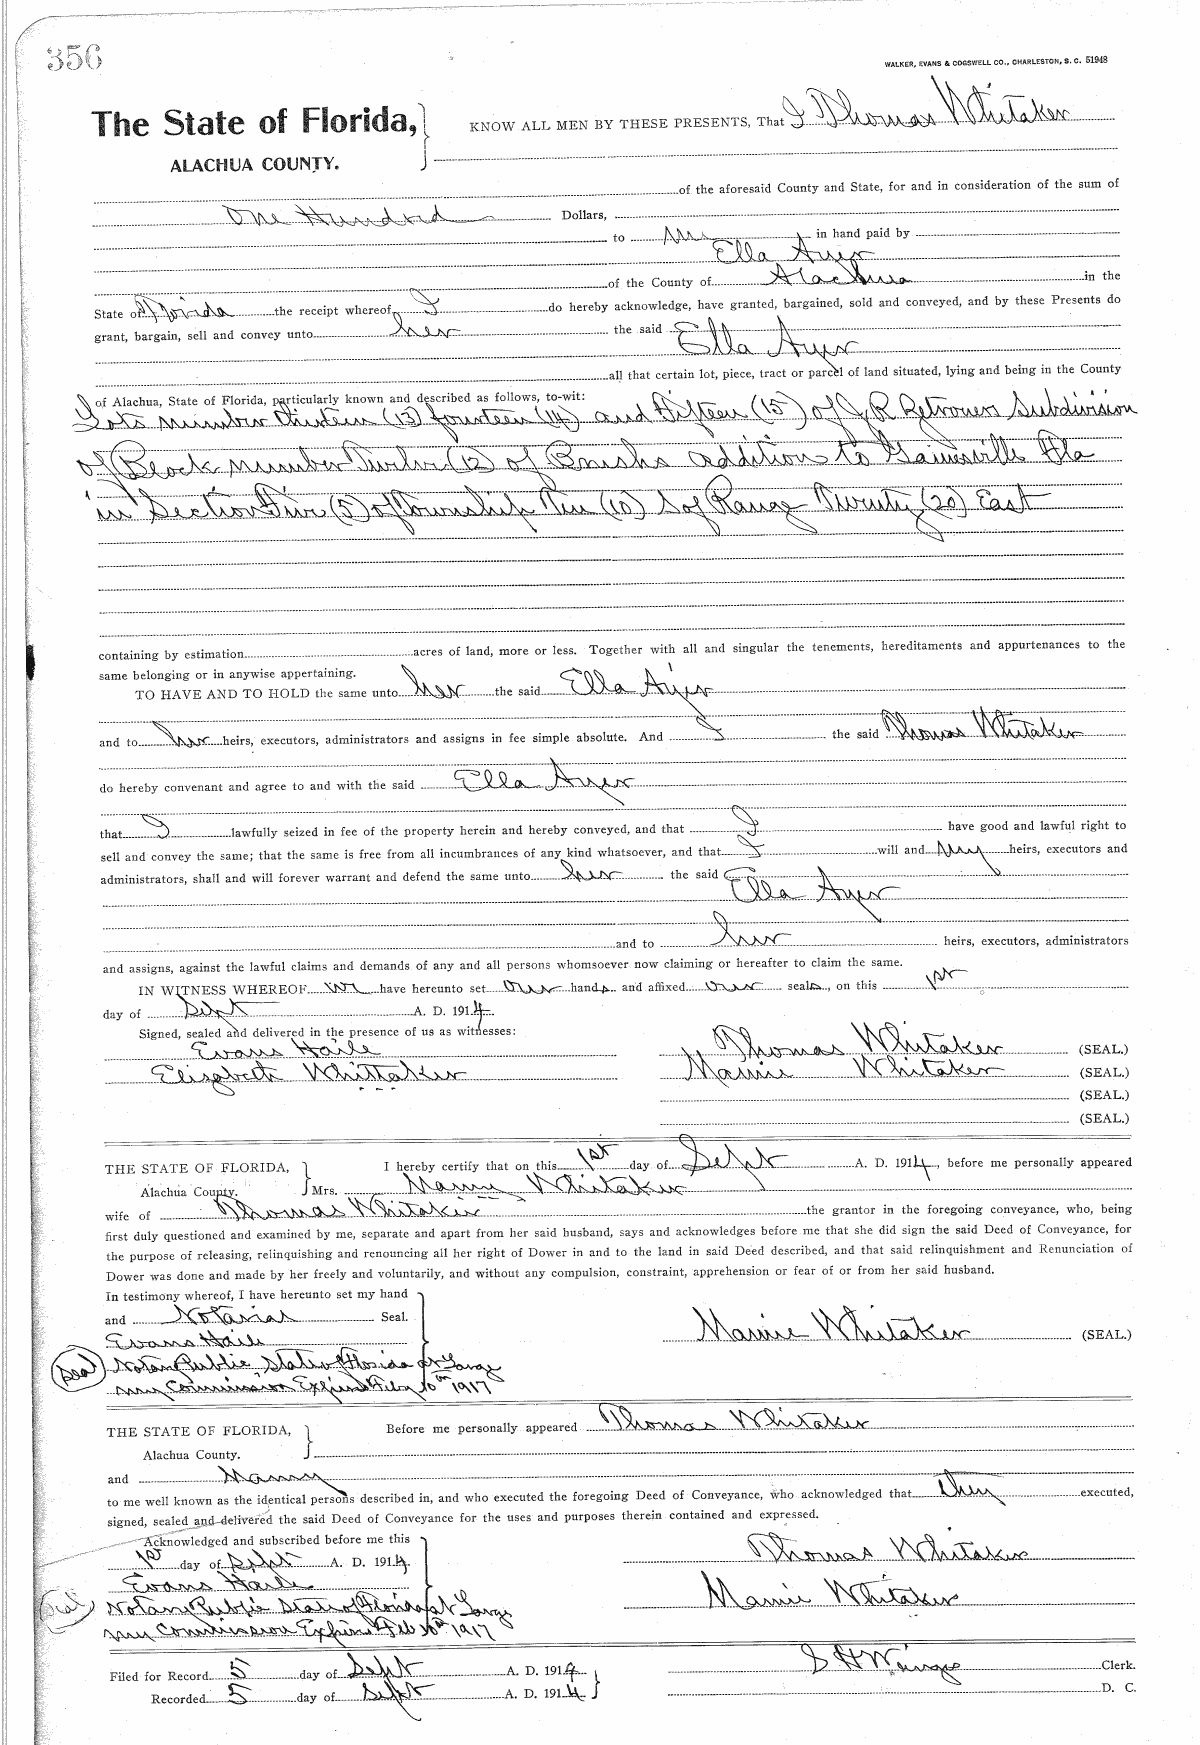 356
WALKER, EVANS & COGSWELL CO., CHARLESTON, S. C. 51948
The State of Florida,
ALACHUA COUNTY.
KNOW ALL MEN BY THESE PRESENTS, That I Thomas Whitaker
of the aforesaid County and State, for and in consideration of the sum of
One Hundred Dollars,
to me in hand paid by
Ella Ayer
of the County of Alachua in the
State of Florida the receipt whereof I do hereby acknowledge, have granted, bargained, sold and conveyed, and by these Presents do
grant, bargain, sell and convey unto her the said Ella Ayer
all that certain lot, piece, tract or parcel of land situated, lying and being in the County
of Alachua, State of Florida, particularly known and described as follows, to-wit:
Lots number thirteen (13) fourteen (14) and Fifteen (15) of J. R. Subdivision
of Block number Twelve (12) of Brushs addition to Gainesville Fla
in Section Five (5) of Township Ten (10) S of Range Twenty (20) East
containing by estimation acres of land, more or less. Together with all and singular the tenements, hereditaments and appurtenances to the
same belonging or in anywise appertaining.
TO HAVE AND TO HOLD the same unto her the said Ella Ayer
and to her heirs, executors, administrators and assigns in fee simple absolute. And I the said Thomas Whitaker
do hereby convenant and agree to and with the said Ella Ayer
that I lawfully seized in fee of the property herein and hereby conveyed, and that I have good and lawful right to
sell and convey the same; that the same is free from all incumbrances of any kind whatsoever, and that I will and my heirs, executors and
administrators, shall and will forever warrant and defend the same unto her the said Ella Ayer
and to her heirs, executors, administrators
and assigns, against the lawful claims and demands of any and all persons whomsoever now claiming or hereafter to claim the same.
IN WITNESS WHEREOF we have hereunto set our hands and affixed our seals, on this 1st
day of Sept A. D. 1914.
Signed, sealed and delivered in the presence of us as witnesses:
Evans Haile Thomas Whitaker (SEAL.)
Elizabeth Whittaker Mamie Whitaker (SEAL.)
(SEAL.)
(SEAL.)
THE STATE OF FLORIDA, I hereby certify that on this 1st day of Sept A. D. 1914, before me personally appeared
Alachua County. Mrs. Mamie Whitaker
wife of Thomas Whitaker the grantor in the foregoing conveyance, who, being
first duly questioned and examined by me, separate and apart from her said husband, says and acknowledges before me that she did sign the said Deed of Conveyance, for
the purpose of releasing, relinquishing and renouncing all her right of Dower in and to the land in said Deed described, and that said relinquishment and Renunciation of
Dower was done and made by her freely and voluntarily, and without any compulsion, constraint, apprehension or fear of or from her said husband.
In testimony whereof, I have hereunto set my hand
and Notarial Seal.
Evans Haile Mamie Whitaker (SEAL.)
Seal Notary Public State of Florida at Large
my Commission Expires Feby 10th 1917
THE STATE OF FLORIDA, Before me personally appeared Thomas Whitaker
Alachua County.
and Mamy
to me well known as the identical persons described in, and who executed the foregoing Deed of Conveyance, who acknowledged that they executed,
signed, sealed and delivered the said Deed of Conveyance for the uses and purposes therein contained and expressed.
Acknowledged and subscribed before me this
1st day of Sept A. D. 1914. Thomas Whitaker
Evans Haile
Seal Notary Public State of Florida at Large Mamie Whitaker
my Commission Expires Feb 10th 1917
Filed for Record 5 day of Sept A. D. 1914 Clerk.
Recorded 5 day of Sept A. D. 1914 D. C.